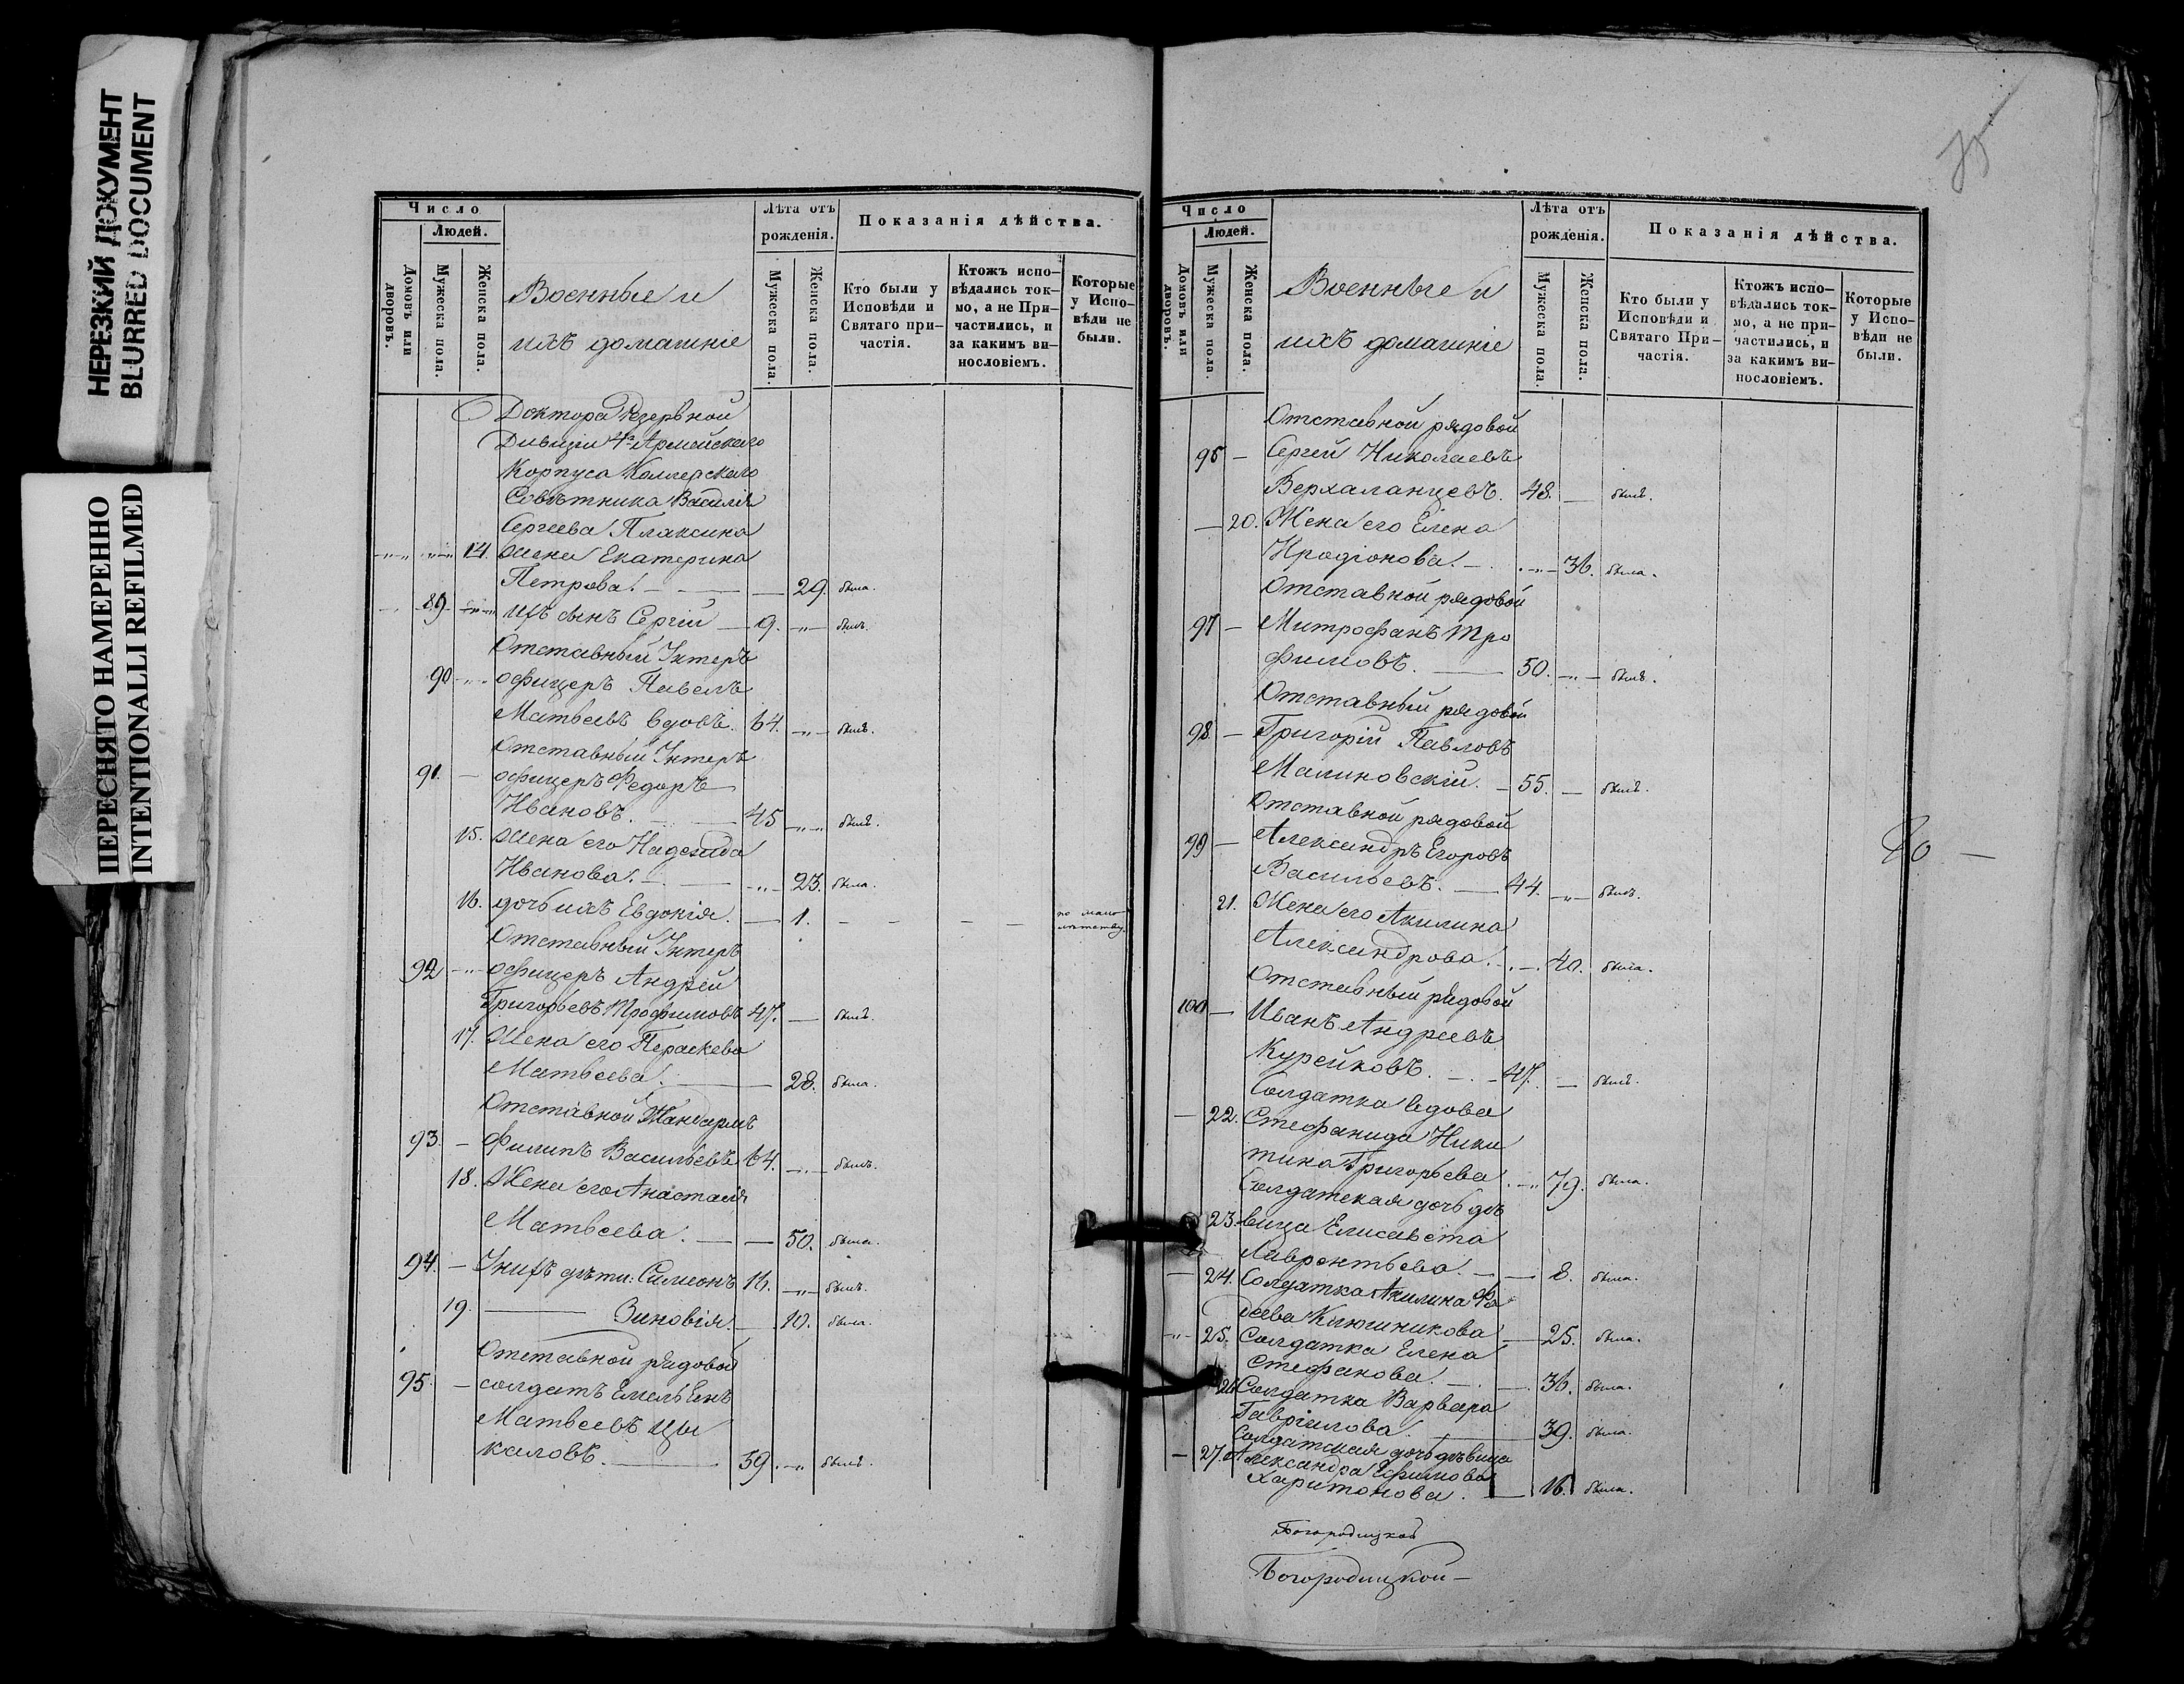 НЕРЕЗКИЙ ДОКУМЕНТ
BLURRED DOCUMENT
ПЕРЕСНЯТО НАМЕРЕННО
INTENTIONALLI REFILMED
Число
Людей.
Домовъ или дворовъ.
Мужеска пола.
Женска пола.
Военные и
ихъ домашніе
Лѣта отъ
рожденія.
Мужеска пола.
Женска пола.
Показанія дѣйства.
Кто были у
Исповѣди и
Святаго при-
частія.
Ктожъ испо-
вѣдались ток-
мо, а не При-
частились, и
за какимъ ви-
нословіемъ.
Которые
у Испо-
вѣди не
были.
Доктора Резервной
Дивизіи 4го Армейскаго
Корпуса Коллежскаго
Совѣтника Василія
Сергеева Плаксина
14. жена Екатерина
Петрова. — 29. была.
89 — ихъ сынъ Сергій — 9. — былъ.
Отставный Унтеръ
90 — офицеръ Павелъ
Матвеевъ вдовъ. 64. — былъ.
Отставный Унтеръ
91. — офицеръ Федоръ
Ивановъ. — 45 — былъ.
15. жена его Надежда
Иванова. — 23. была.
16. дочь ихъ Евдокія. — 1. — — — — по мало
лѣтству.
Отставный Унтеръ
92 — офицеръ Андрей
Григорьевъ Трофимовъ 47. — былъ.
17. Жена его Параскева
Матвеева. — 28. была.
Отставной Жандармъ
93. — Филипъ Васильевъ 64. — былъ.
18. Жена его Анастасія
Матвеева. — — 50. была.
94. — У нихъ дѣти: Симеонъ 16. — былъ.
19. — Зиновія. — 10. была.
Отставной рядовой
95. — солдатъ Емельянъ
Матвеевъ Цы
каловъ. — 59. — былъ.
75
Число
Людей.
Домовъ или дворовъ.
Мужеска пола.
Женска пола.
Военные и
ихъ домашніе
Лѣта отъ
рожденія.
Мужеска пола.
Женска пола.
Показанія дѣйства.
Кто были у
Исповѣди и
Святаго При-
частія.
Ктожъ испо-
вѣдались ток-
мо, а не при-
частились, и
за какимъ ви-
нословіемъ.
Которые
у Испо-
вѣди не
были.
Отставной рядовой
96 — Сергей Николаевъ
Верхаланцевъ. 48. — былъ.
— 20. Жена его Елена
Иродіонова. — 36. была.
Отставной рядовой
97 — Митрофанъ Тро
фимовъ. — 50. — былъ.
Отставный рядовой
98. — Григорій Павловъ
Малиновскій. — 55. — былъ.
Отставной рядовой
99 — Александръ Егоровъ
Васильевъ. — 44. — былъ.
21. Жена его Акилина
Александрова. — 40. была.
Отставный рядовой
100 — Иванъ Андреевъ
Курейковъ. — 47. — былъ.
Солдатка вдова
— 22. Стефанида Ники
тина Григорьева. — 79. была.
Солдатская дочь дѣ
23. вица Елисавета
Лаврентьева. — — 8. была.
— 24. Солдатка Акилина Фа
деева Ключникова — 25. была.
25. Солдатка Елена
Стефанова. — 36. была.
26. Солдатка Варвара
Гавріилова. — 39. была.
Солдатская дочь дѣвица
— 27. Александра Ефимова
Харитонова. — 16. была.
Богородицкой
Богородицкой —